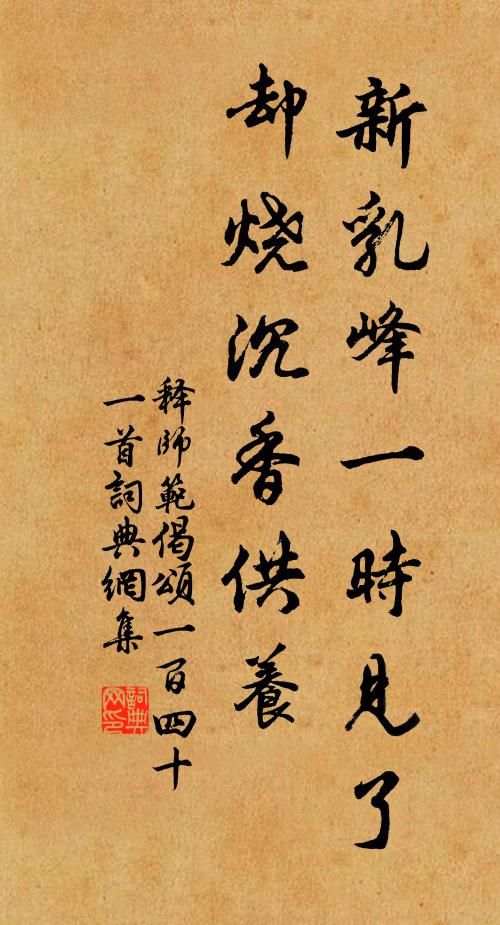 新乳峰一時見了
却烧沉香供養
释師範偈頌一百四十
一首詞典網集
詞典
网印